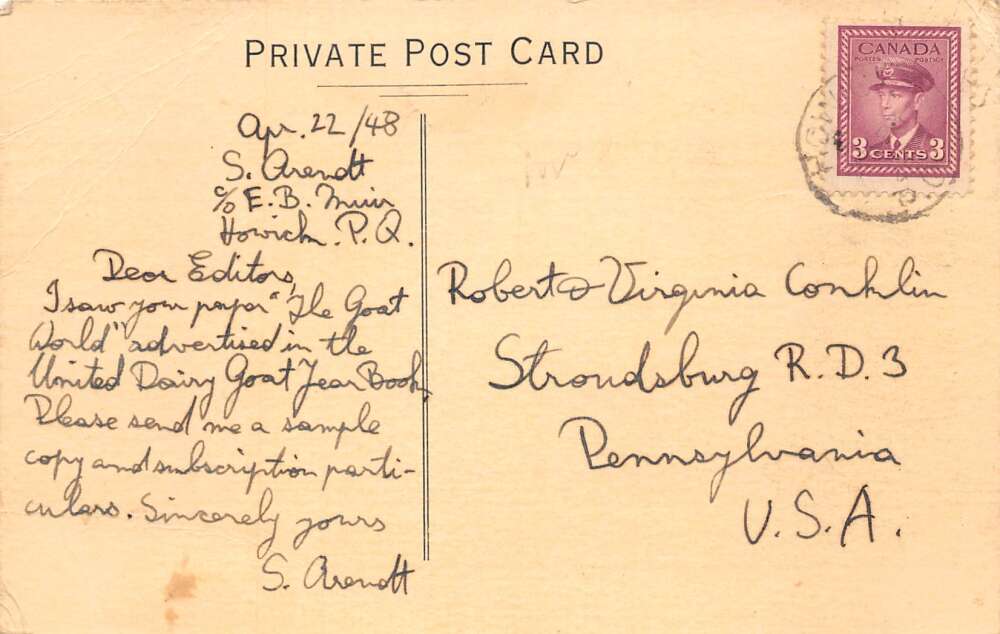 PRIVATE POST CARD
CANADA
POSTES POSTAGE
3 CENTS 3
Apr. 22/48
S. Arendt
c/o E.B. Muir
Howick. P.Q.
Dear Editors,
I saw your paper "The Goat
World" advertised in the
United Dairy Goat Year Book,
Please send me a sample
copy and subscription parti-
culars. Sincerely yours
S. Arendt
Robert & Virginia Conklin
Stroudsburg R.D.3
Pennsylvania
U.S.A.